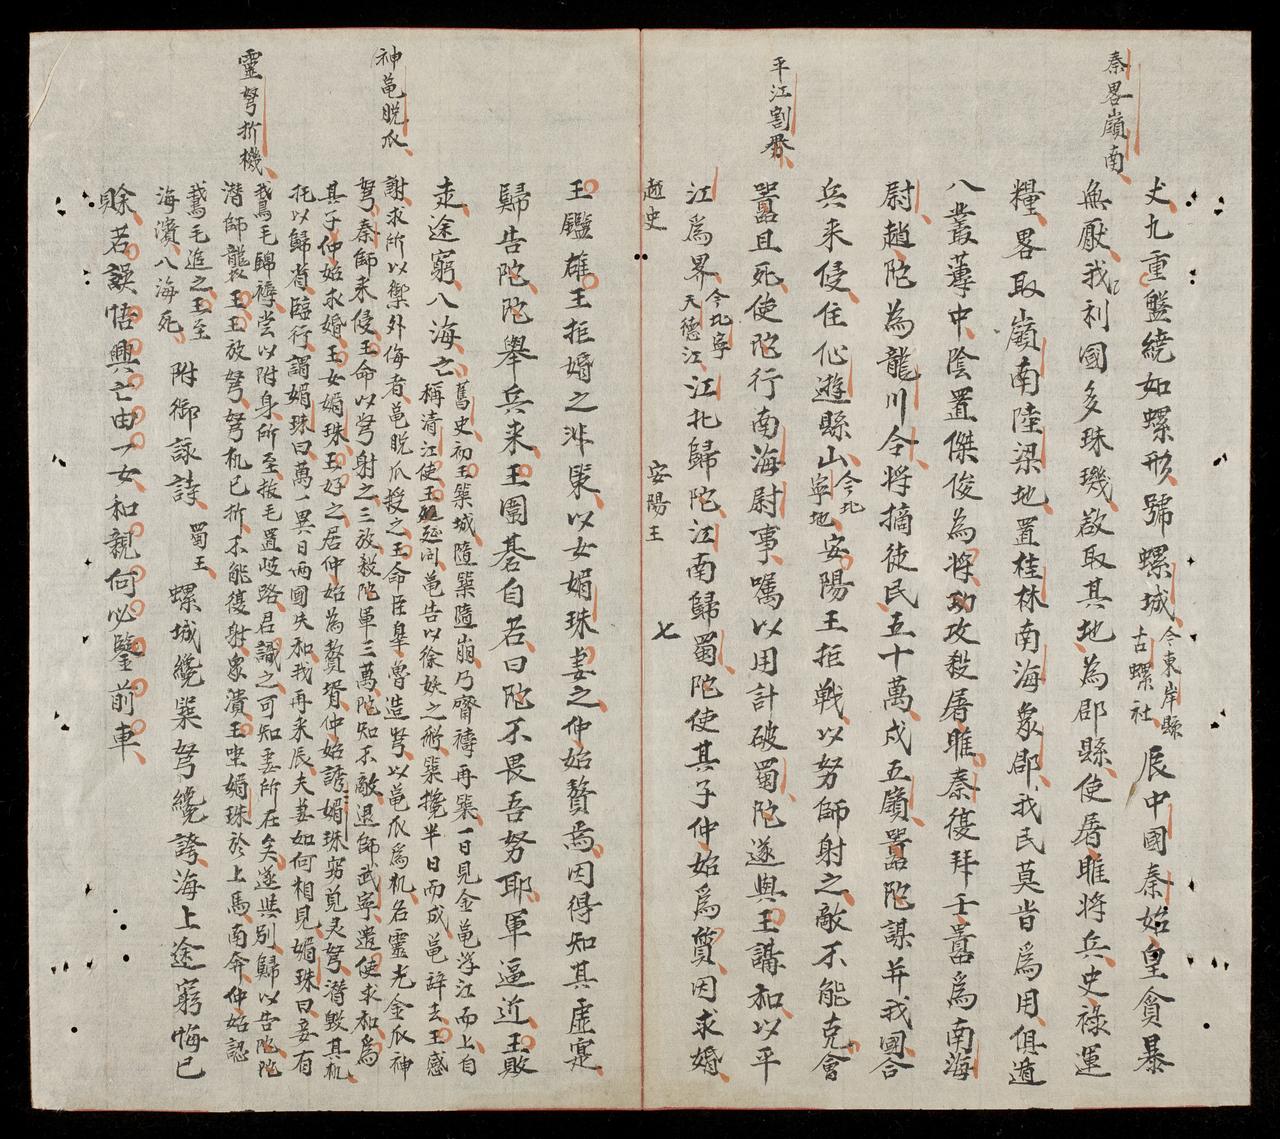 秦畧嶺南
丈九重盤繞如螺形號螺城今東岸縣古螺社辰中國秦始皇貪暴
無厭我利國多珠璣啟取其地為郡縣使屠睢將兵史祿運
糧畧取嶺南陸梁地置桂林南海象郡我民莫肯爲用俱遁
八叢薄中陰置傑俊為將攻殺屠睢秦復拜壬囂爲南海
尉趙陀為龍川令將摘徒民五十萬戍五嶺囂陀謀并我國合
兵来侵住仙遊縣山今北寧地安陽王拒戰以弩師射之敵不能克會
平江割界
囂且死使陀行南海尉事囑以用計破蜀陀遂與王講和以平
江爲界今北寧天德江江北歸陀江南歸蜀陀使其子仲始爲質因求婚
越史 安陽王 七
王鑑雄王拒婚之非策以女媚珠妻之仲始贅焉因得知其虛寔
歸告陀陀舉兵来王圍碁自若曰陀不畏吾弩耶軍逼近王敗
走途窮八海亡舊史初王築城隨築隨崩乃齋禱再築一日見金龜浮江而上自
稱清江使王延問龜告以徐妖之術築攙半日而成龜辞去王感
神龜脱爪
謝求所以禦外侮者龜脱爪授之王命臣皐魯造弩以龜爪爲机名靈光金爪神
弩秦師来侵王命以弩射之三放殺陀軍三萬陀知不敵退師武寧遣使求和爲
其子仲始求婚王女媚珠王好之居仲始為贅壻仲始誘媚珠窃覓灵弩潛毀其机
托以歸省臨行謂媚珠曰萬一異日兩國失和我再来辰夫妻如何相見媚珠曰妾有
靈弩折機
鵞毛錦褥尝以附身所至拔毛置岐路君識之可知妾所在矣遂與别歸以告陀陀
潜師襲王王放弩弩机已折不能復射衆潰王坐媚珠於上馬南奔仲始認
鵞毛追之王至海濱八海死附御詠詩蜀王螺城纔築弩纔誇海上途窮悔已
賒若誤悟興亡由一女和親何必鑒前車